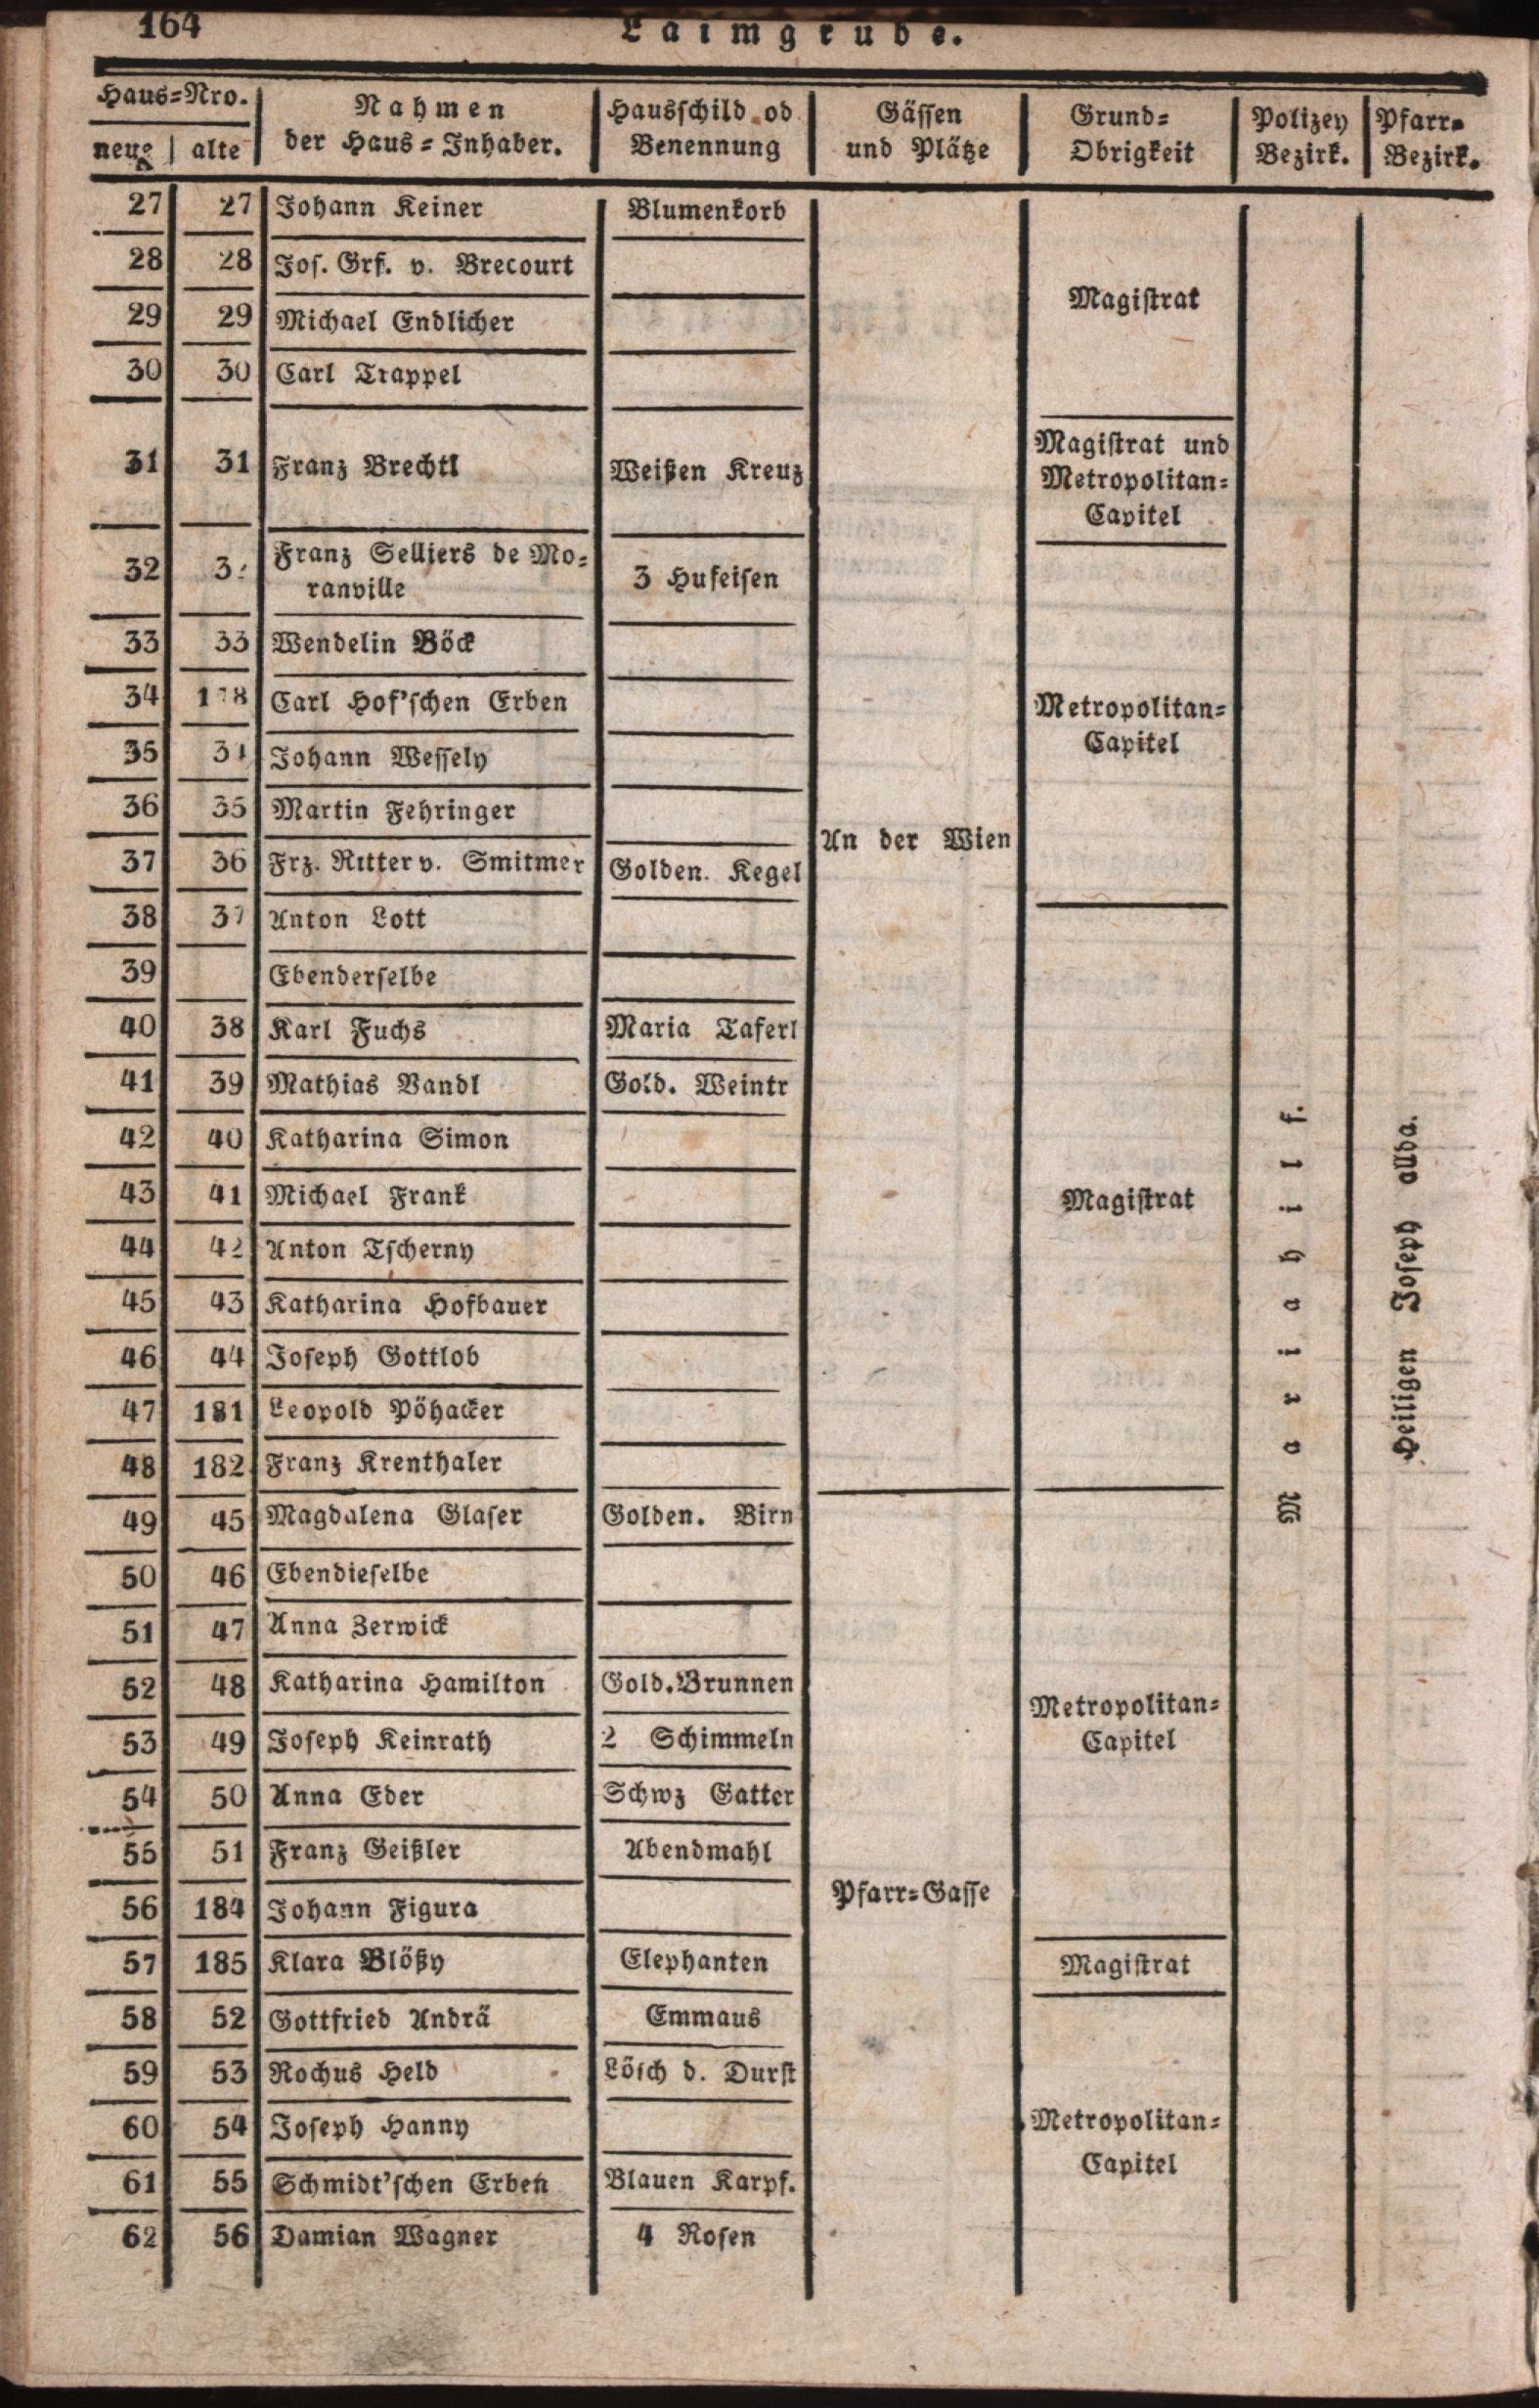 164
Laimgrube.
Haus=Nro. Nahmen Hausschild od Gässen Grund= Polizey Pfarr=
neue alte der Haus=Inhaber. Benennung und Plätze Obrigkeit Bezirk. Bezirk.
27 27 Johann Keiner Blumenkorb
28 28 Jos. Grf. v. Brecourt
Magistrat
29 29 Michael Endlicher
30 30 Carl Trappel
Magistrat und
31 31 Franz Brechtl Weißen Kreuz Metropolitan=
Capitel
FranzSelliers de Mo=
32 3 3 Hufeisen
ranville
33 33 Wendelin Böck
34 Carl Hof'schen Erben Metropolitan=
35 Johann Wessely Capitel
36 35 Martin Fehringer
An der Wien
37 36 Frz. Ritter v. Smitmer Golden. Kegel
38 37 Anton Lott
39 Ebenderselbe
40 38 Karl Fuchs Maria Taferl
41 39 Mathias Bandl Gold. Weintr
42 40 Katharina Simon
43 41 Michael Frank Magistrat
44 42 Anton Tscherny
45 43 Katharina Hofbauer
46 44 Joseph Gottlob
47 181 Leopold Pöhacker
48 182 Franz Krenthaler
Mariahilf.
Heiligen Joseph allda.
49 45 Magdalena Glaser Golden. Birn
50 46 Ebendieselbe
51 47 Anna Zerwick
52 48 Katharina Hamilton Gold. Brunnen Metropolitan=
53 49 Joseph Keinrath 2 Schimmeln Capitel
54 50 Anna Eder Schwz Gatter
55 51 Franz Geißler Abendmahl
Pfarr=Gasse
56 184 Johann Figura
57 185 Klara Blößy Elephanten Magistrat
58 52 Gottfried Andrä Emmaus
59 53 Rochus Held Lösch d. Durst
60 54 Joseph Hanny Metropolitan=
61 55 Schmidt'schen Erben Blauen Karpf. Capitel
62 56 Damian Wagner 4 Rosen